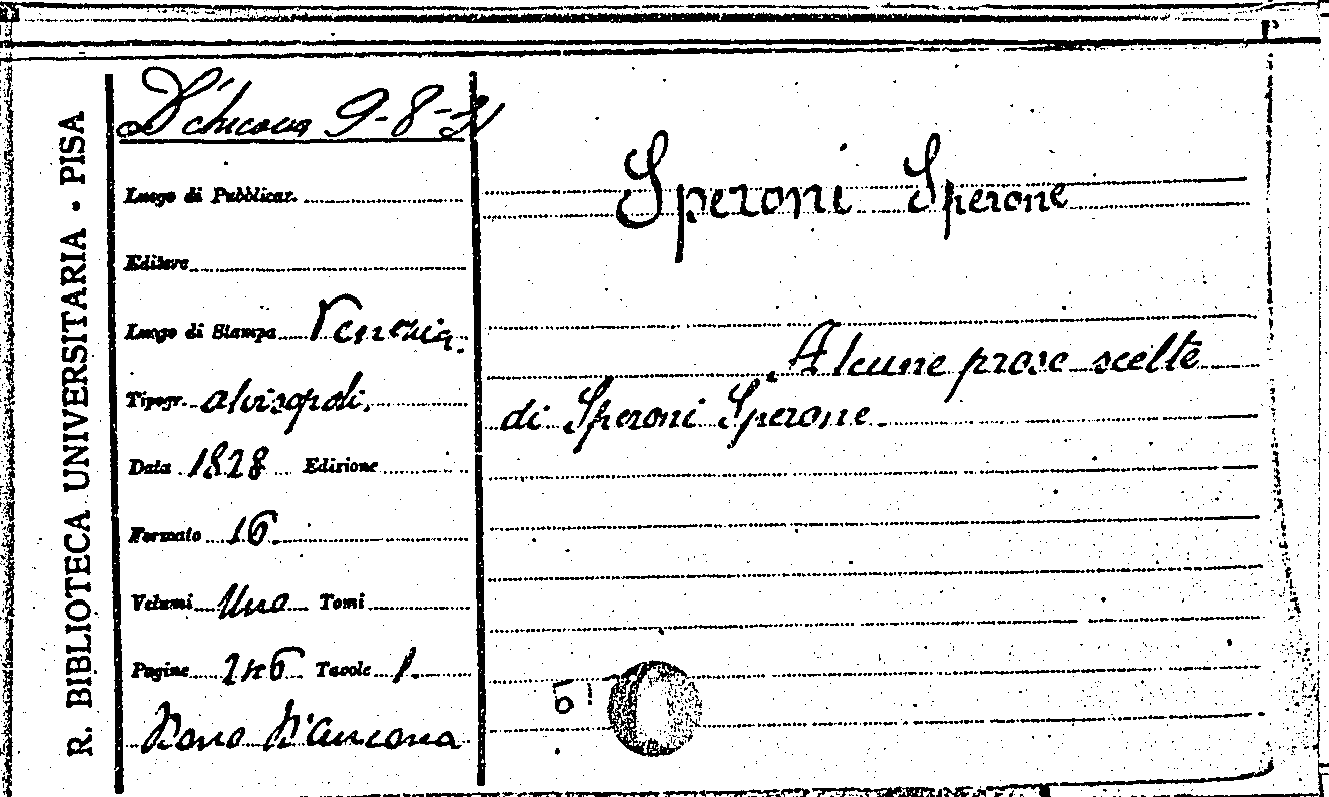 R. BIBLIOTECA UNIVERSITARIA - PISA
D'Ancona 9-8-31
Luogo di Pubblicaz.
Editore
Luogo di Stampa Venezia.
Tipogr. alvisopoli.
Data 1828 Edizione
Formato 16.
Volumi Uno Tomi
Pagine 246 Tavole 1.
Dono D'Ancona
Speroni Sperone
Alcune prose scelte
di Speroni Sperone.